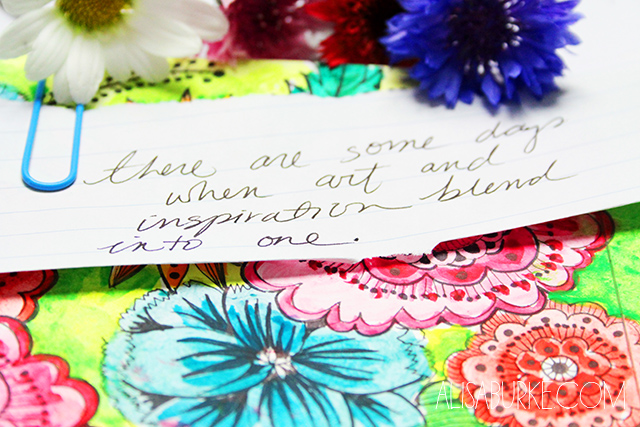 there are some days
when art and
inspiration blend
into one.
ALISABURKE.COM